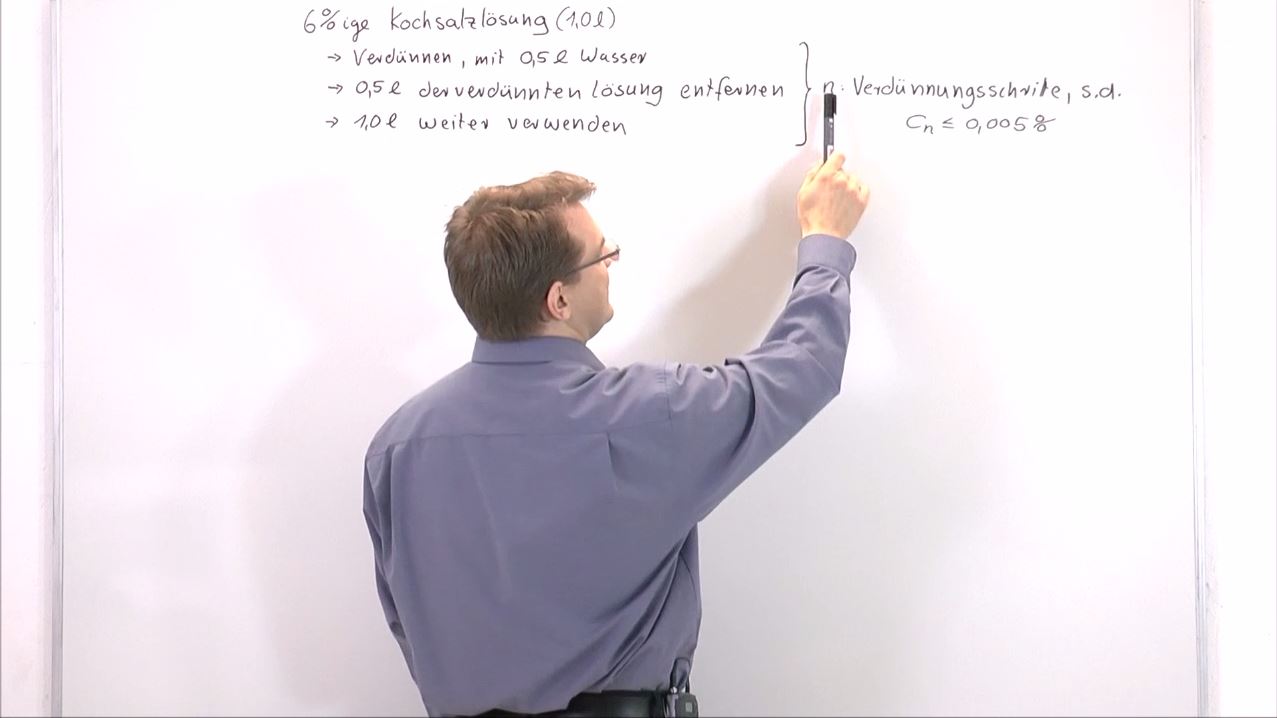 6%ige Kochsalzlösung (1,0 l)
→ Verdünnen, mit 0,5 l Wasser
→ 0,5 l der verdünnten Lösung entfernen
→ 1,0 l weiter verwenden
n: Verdünnungsschritte, s.d.
Cn ≤ 0,005 %